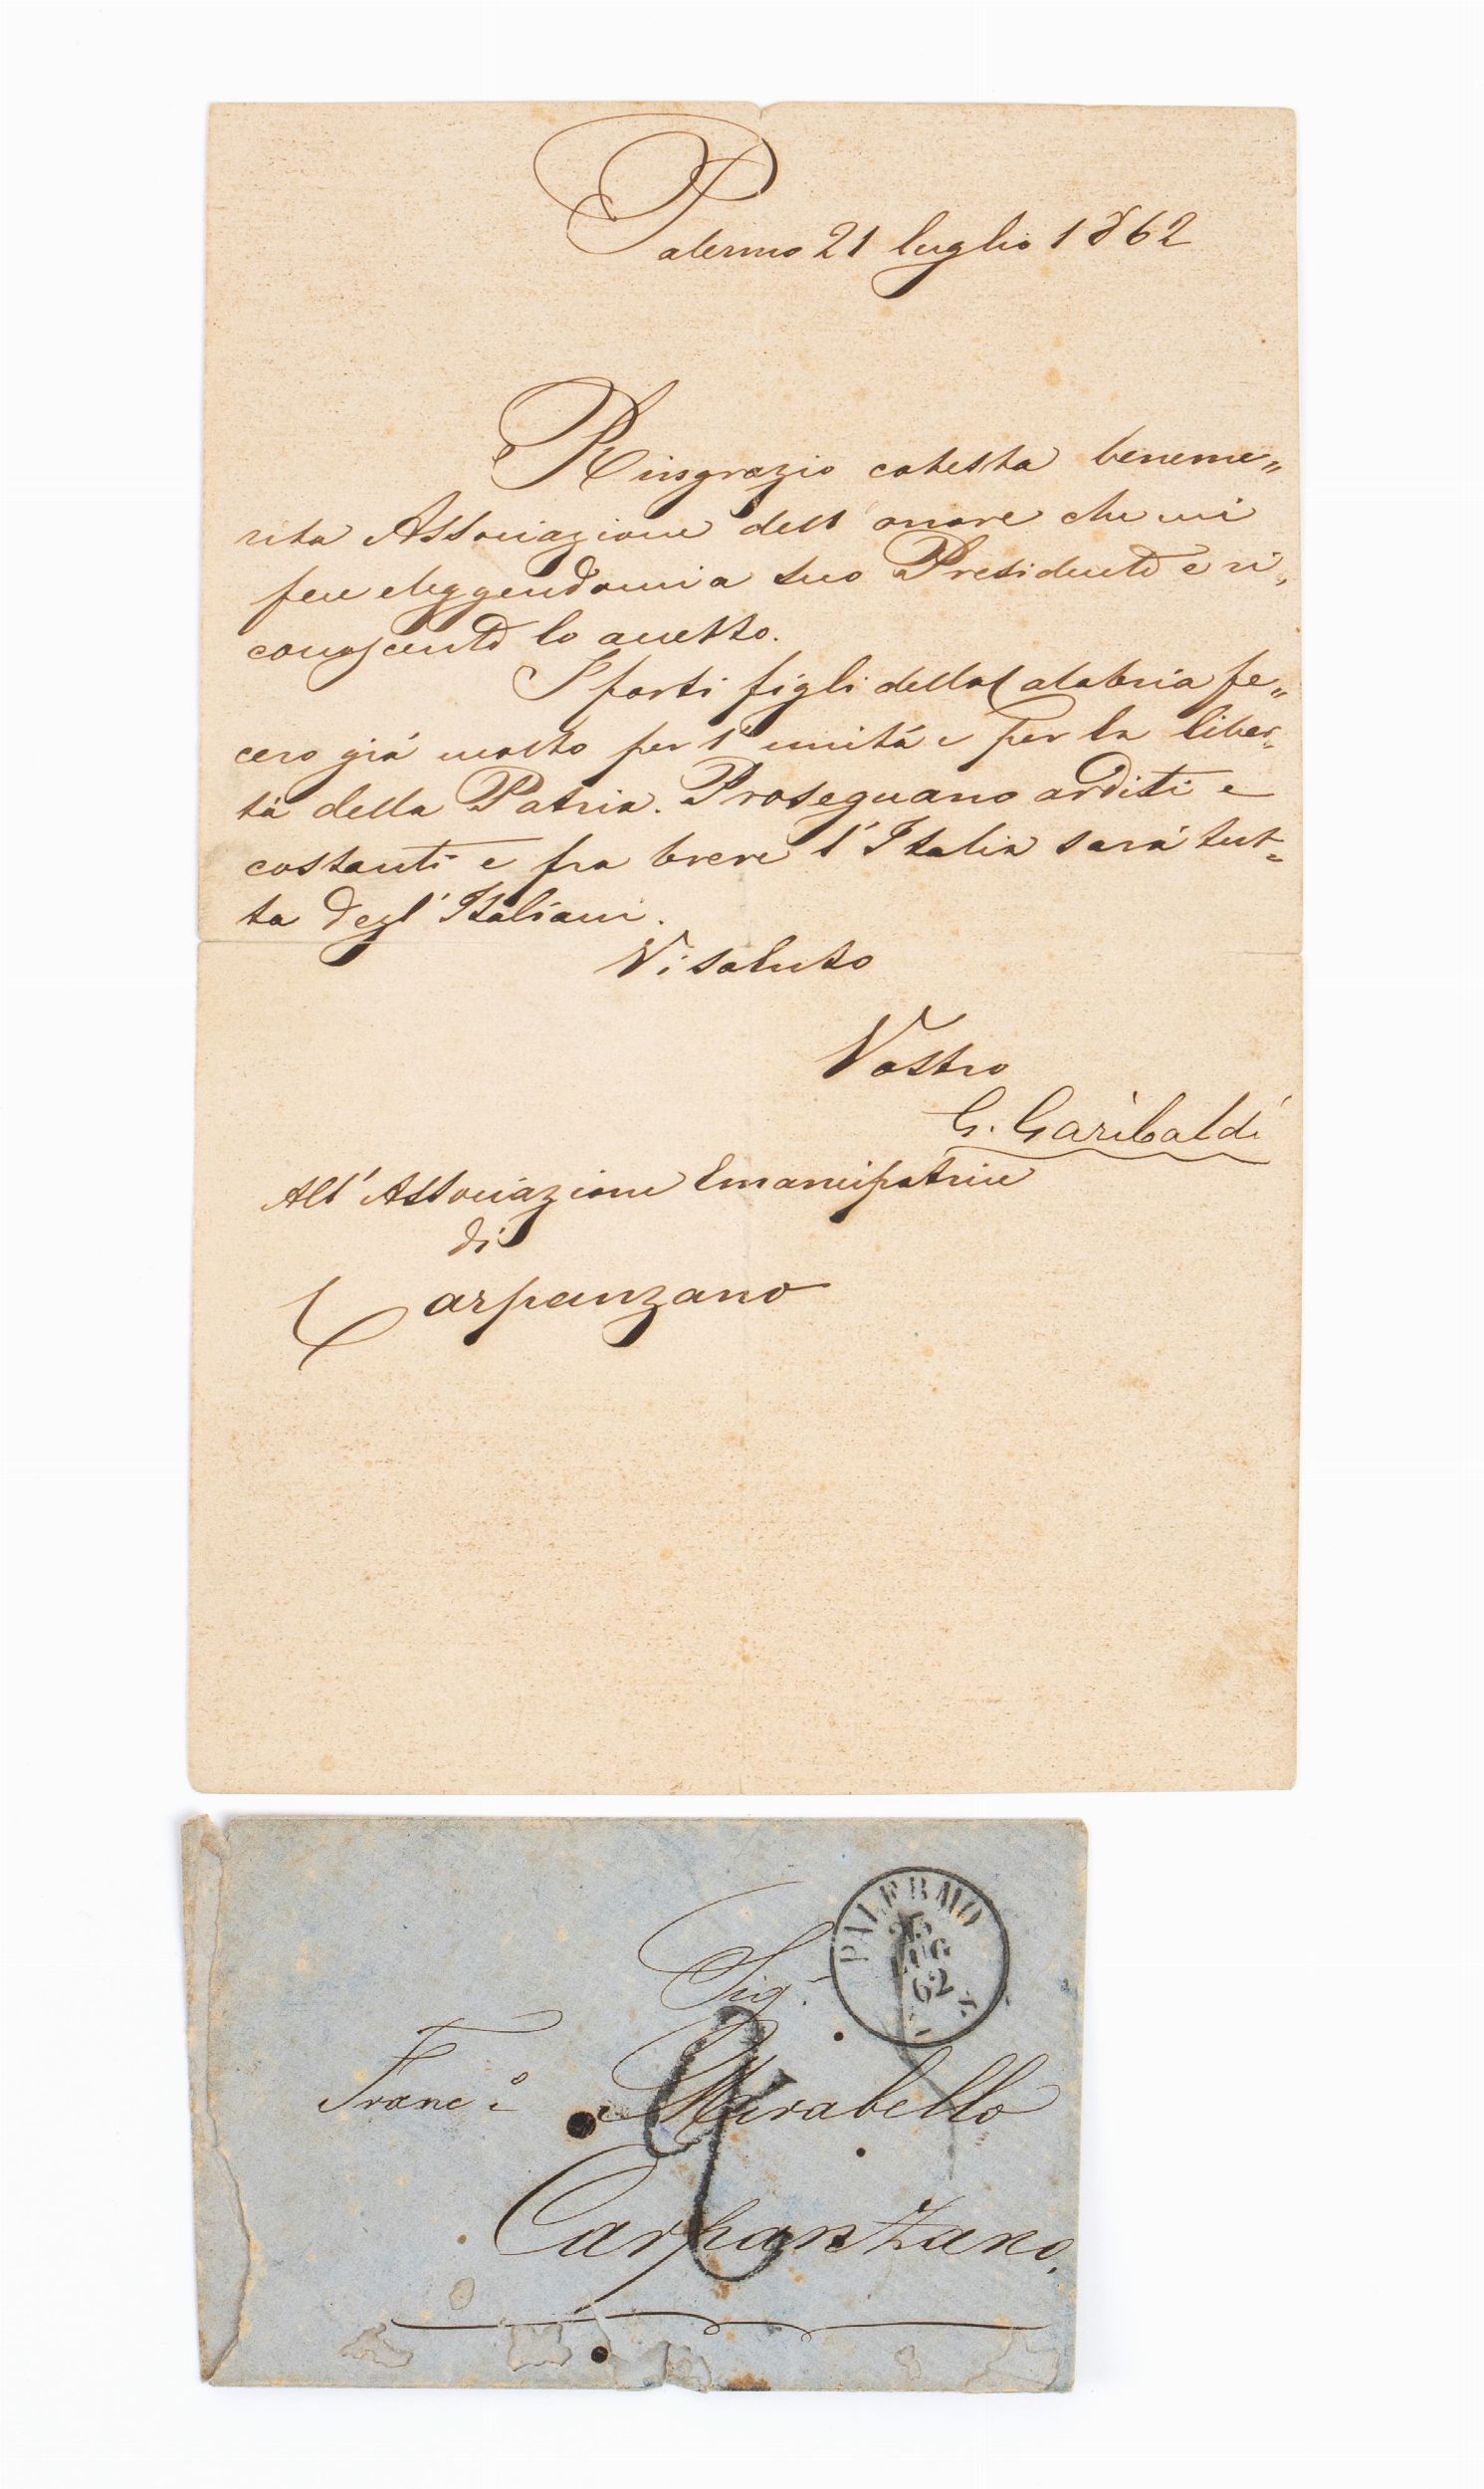 Palermo 21 luglio 1862
Ringrazio cotesta beneme„
rita Associazione dell'onore che mi
fece eleggendomi a suo Presidente e ri„
conoscente lo accetto.
I forti figli della Calabria fe„
cero giá molto per l'unitá e per la liber„
tá della Patria. Proseguano arditi e
costanti e fra breve l'Italia sará tut=
ta degl'Italiani.
Vi saluto
Vostro
G. Garibaldi
All'Associazione Emancipatrice
di
Carpanzano
PALERMO
LUG
62
Sig.r
Franc.o Mirabello
Carpanzano.